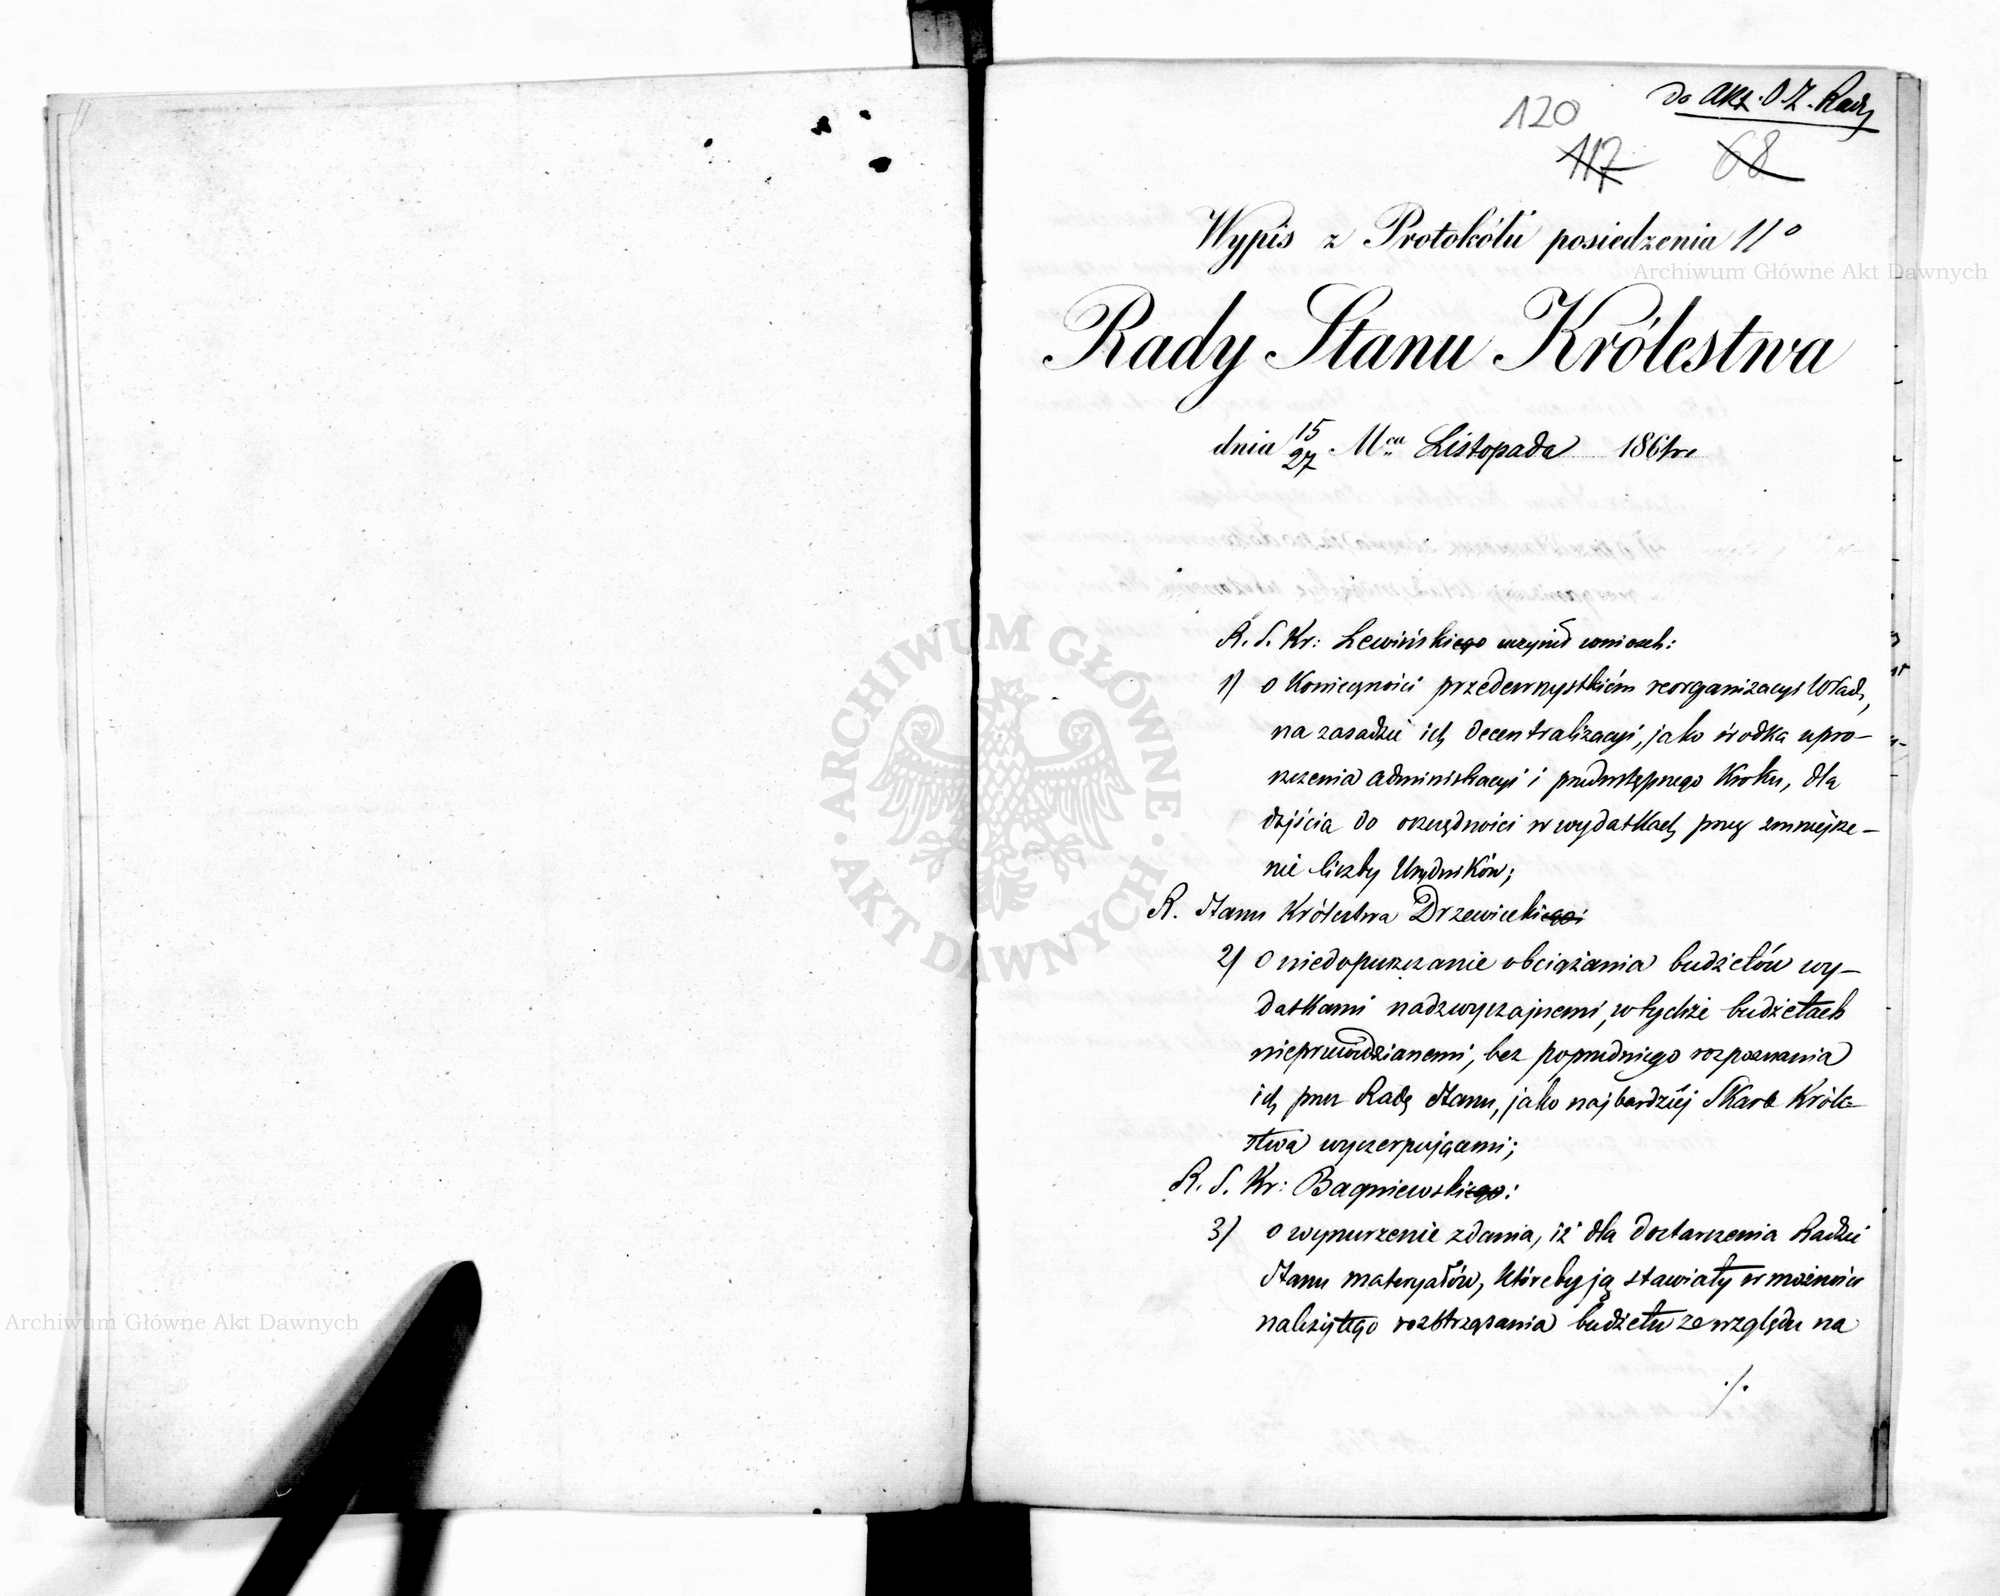 do Akt. O. Z. Rady
120
117
68
Wypis z Protokółu posiedzenia 11º
Archiwum Główne Akt Dawnych
Rady Stanu Królestwa
dnia 15/27 Mca Listopada 1861 r.
R. S. Kr: Lewińskiego uczynił wniosek:
1) o Konieczności przedewszystkiém reorganizacyi Władz,
na zasadzie ich decentralizacyi, jako środka upro-
szczenia administracyi i przedwstępnego Kroku, dla
dojścia do oszczędności w wydatkach przy zmniejsze-
nie liczby Urzędników;
R. Stanu Królestwa Drzewieckiego:
2) o niedopuszczanie obciążania budżetów wy-
datkami nadzwyczajnemi, w tychże budżetach
nieprzewidzianemi, bez poprzedniego rozpoznania
ich przez Radę Stanu, jako najbardziéj Skarb Króle-
stwa wyczerpującemi;
R. S. Kr: Bagniewskiego:
3) o wynurzenie zdania, iż dla dostarczenia Radzie
Stanu materyałów, któreby ją stawiały w możności
należytego roztrząsania budżetu ze względu na
./.
ARCHIWUM GŁÓWNE AKT DAWNYCH
Archiwum Główne Akt Dawnych